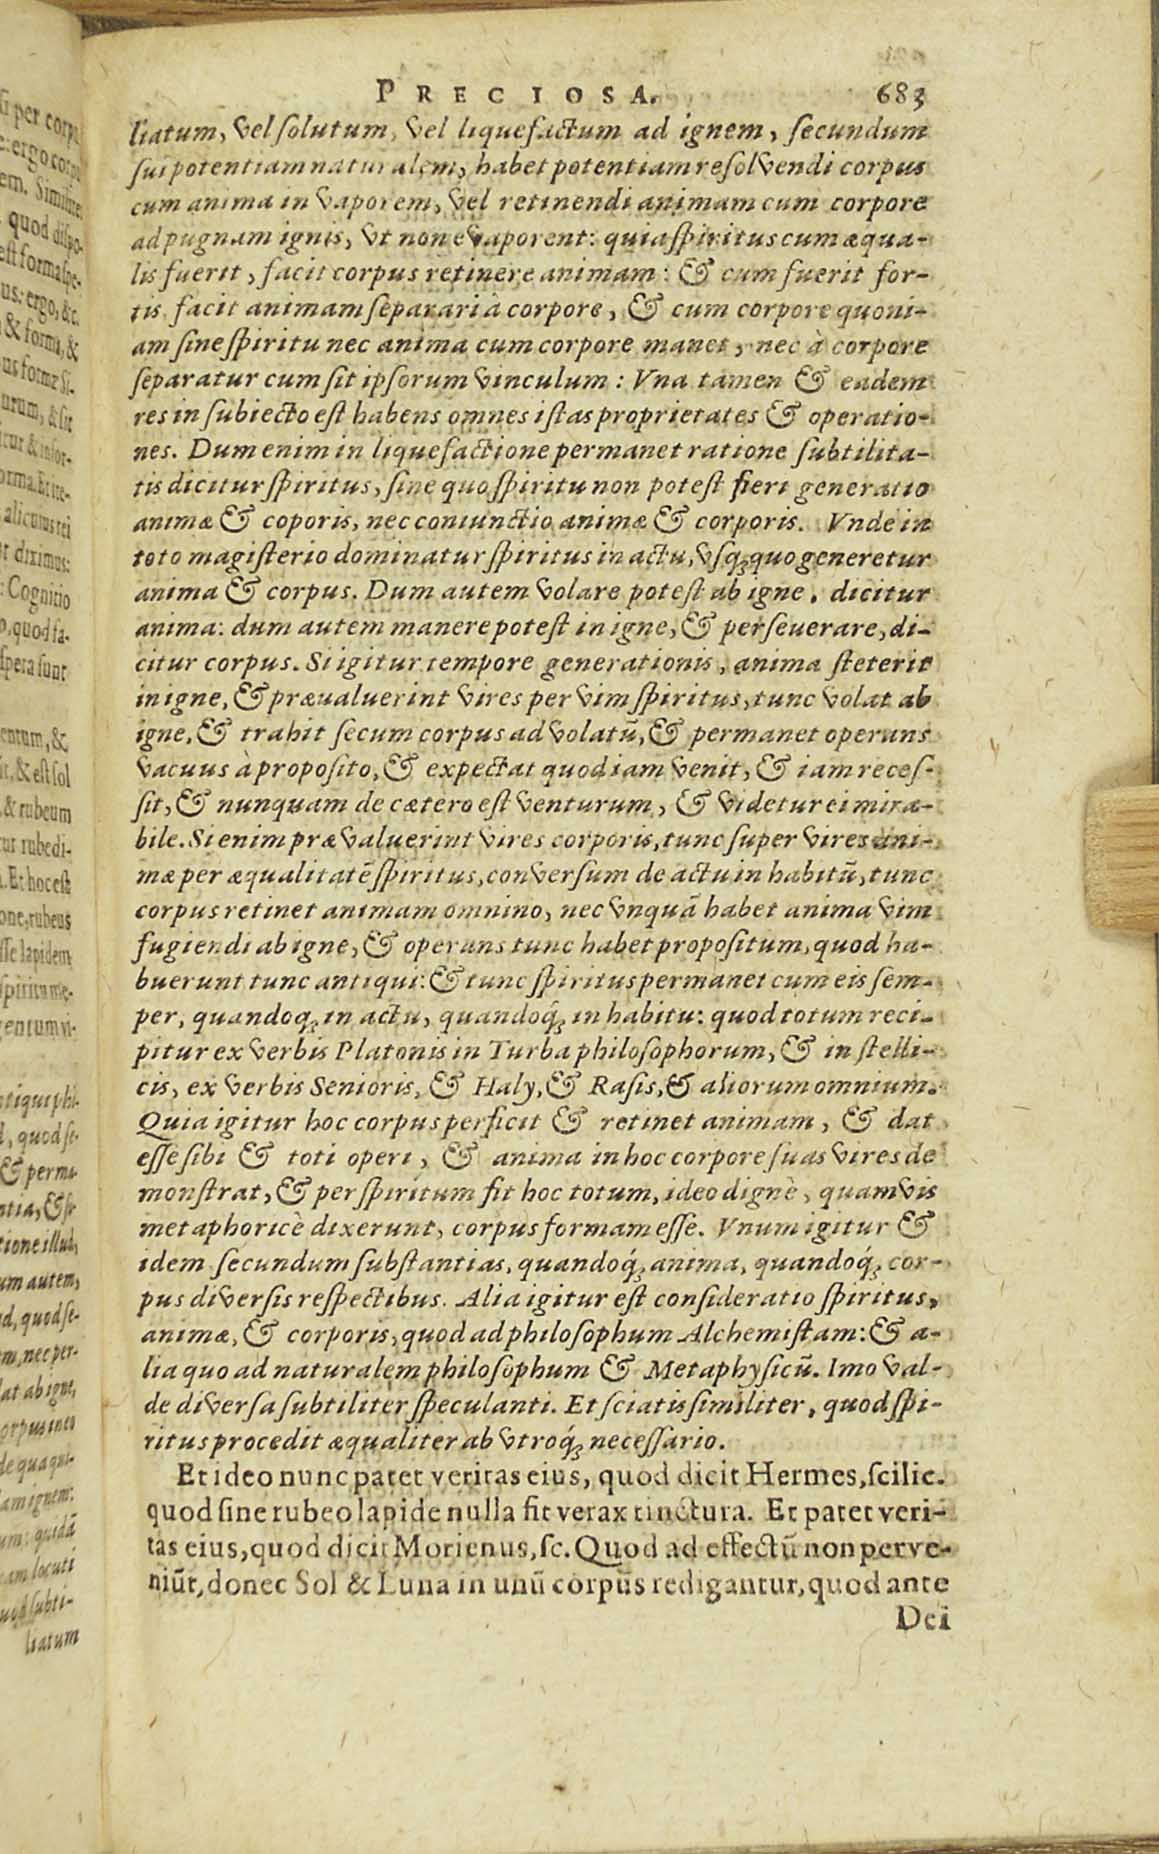 PRECIOSA. 683
liatum, vel solutum, vel liquefactum ad ignem, secundum
sui potentiam naturalem, habet potentiam resolvendi corpus
cum anima in vaporem, vel retinendi animam cum corpore
ad pugnam ignis, vt non evaporent: quia spiritus cum æqua-
lis fuerit, facit corpus retinere animam: & cum fuerit for-
tis facit animam separari à corpore, & cum corpore quoni-
am sine spiritu nec anima cum corpore manet, nec à corpore
separatur cum sit ipsorum vinculum: Vna tamen & eadem
res in subiecto est habens omnes istas proprietates & operatio-
nes. Dum enim in liquefactione permanet ratione subtilita-
tis dicitur spiritus, sine quo spiritu non potest fieri generatio
animæ & coporis, nec coniunctio animæ & corporis. Vnde in
toto magisterio dominatur spiritus in actu, vsq; quo generetur
anima & corpus. Dum autem volare potest ab igne, dicitur
anima: dum autem manere potest in igne, & perseuerare, di-
citur corpus. Si igitur tempore generationis, anima steterit
in igne, & præualuerint vires per vim spiritus, tunc volat ab
igne, & trahit secum corpus ad volatũ, & permanet operans
vacuus à proposito, & expectat quod iam venit, & iam reces-
sit, & nunquam de cætero est venturum, & videtur ei mira-
bile. Si enim prævaluerint vires corporis, tunc super vires ani-
mæ per æqualitatẽ spiritus, conversum de actu in habitũ, tunc
corpus retinet animam omnino, nec vnquã habet anima vim
fugiendi ab igne, & operans tunc habet propositum, quod ha-
buerunt tunc antiqui: & tunc spiritus permanet cum eis sem-
per, quandoq; in actu, quandoq́; in habitu: quod totum reci-
pitur ex verbis Platonis in Turba philosophorum, & in stelli-
cis, ex verbis Senioris, & Haly, & Rasis, & aliorum omnium.
Quia igitur hoc corpus perficit & retinet animam, & dat
esse sibi & toti operi, & anima in hoc corpore suas vires de
monstrat, & per spiritum fit hoc totum, ideo dignè, quamvis
metaphoricè dixerunt, corpus formam esse. Vnum igitur &
idem secundum substantias, quandoq́; anima, quandoq́; cor-
pus diversis respectibus. Alia igitur est consideratio spiritus,
animæ, & corporis, quod ad philosophum Alchemistam: & a-
lia quo ad naturalem philosophum & Metaphysicũ. Imo val-
de diversa subtiliter speculanti. Et sciatis similiter, quod spi-
ritus procedit æqualiter ab vtroq́; necessario.
Et ideo nunc patet veritas eius, quod dicit Hermes, scilic.
quod sine rubeo lapide nulla fit verax tinctura. Et patet veri-
tas eius, quod dicit Morienus, sc. Quod ad effectũ non perve-
niũt, donec Sol & Luna in unũ corpus redigantur, quod ante
Dei